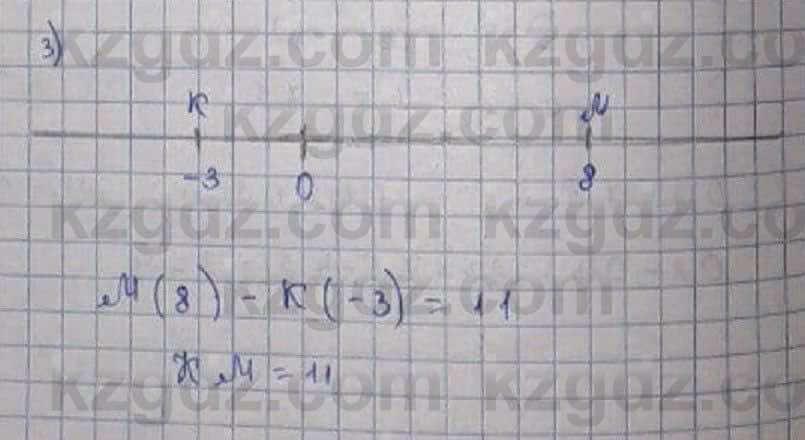 3)
kzgdz.com kzgdz.com
К М
kzgdz.com
-3 0 8
kzgdz.com kzgdz.co
М(8) - К(-3) = 11
kzgdz.com
КМ = 11
kzgdz.com kzgdz.co